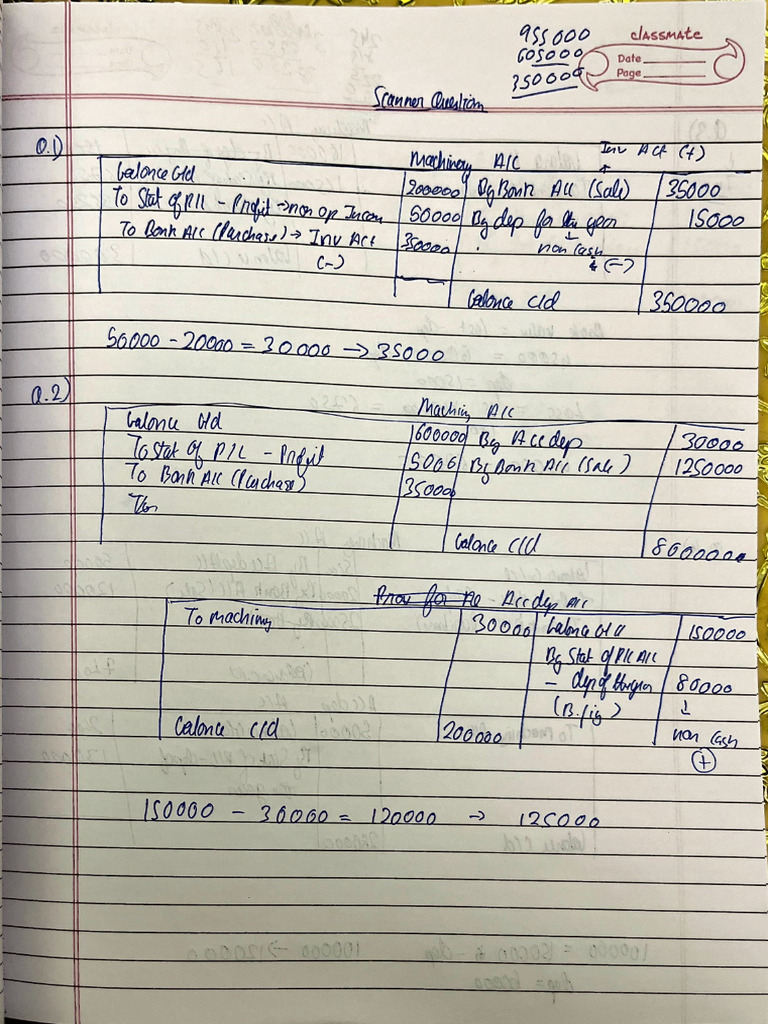 955000
605000
350000
classmate
Date
Page
Scanner Question
Q.1)
Machinery A/C
Inv Act (+)
balance b/d 200000 By Bank A/C (Sale) 35000
To Stat of P/L - Profit → non op Income 50000 By dep for the year 15000
To Bank A/C (Purchase) → Inv Act 350000 non cash
(-) (-)
balance c/d 350000
50000 - 20000 = 30000 → 35000
Q.2)
Machiny A/C
balance b/d 1600000 By Acc dep 30000
To Stat of P/L - Profit 5000 By Bank A/C (Sale) 1250000
To Bank A/C (Purchase) 350000
To
balance c/d 8000000
Prov for Acc dep A/C
To machiny 30000 balance b/d 150000
By Stat of P/L A/C
- dep of 80000
(B.fig) ↓
balance c/d 200000 non cash
+
150000 - 30000 = 120000 → 125000